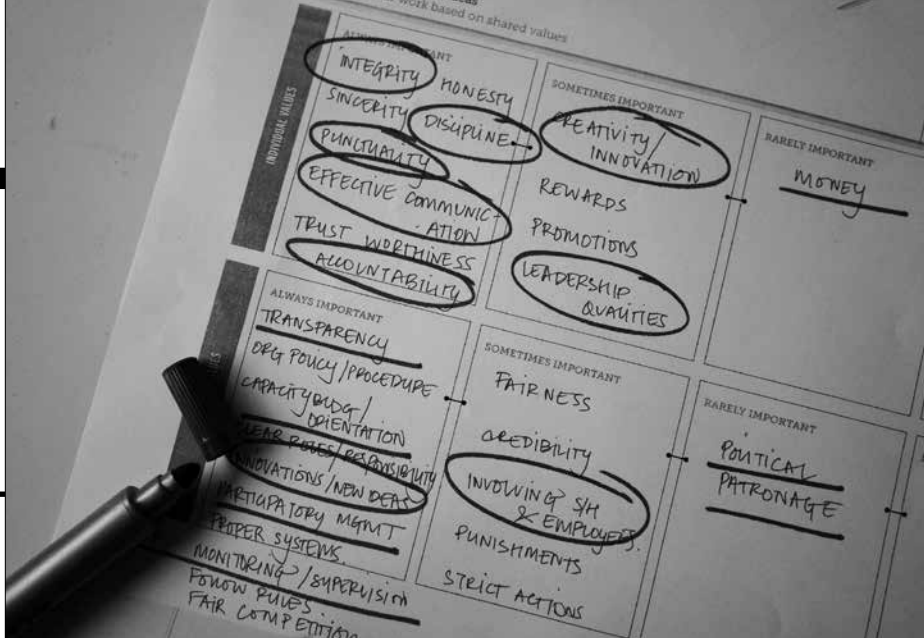 work based on shared values
INDIVIDUAL VALUES
ALWAYS IMPORTANT
INTEGRITY
HONESTY
SINCERITY
DISCIPLINE
PUNCTUALITY
EFFECTIVE COMMUNIC-
ATION
TRUST WORTHINESS
ACCOUNTABILITY
SOMETIMES IMPORTANT
CREATIVITY/
INNOVATIION
REWARDS
PROMOTIONS
LEADERSHIP
QUALITIES
RARELY IMPORTANT
MONEY
ALWAYS IMPORTANT
TRANSPARENCY
ORG POLICY/PROCEDURE
CAPACITY BLDG/
ORIENTATION
CLEAR ROLES/RESPONSIBILITY
INNOVATIONS/NEW IDEAS
PARTICIPATORY MGMT
PROPER SYSTEMS.
MONITORING/SUPERVISION
FOLLOW RULES.
FAIR COMPETITION
SOMETIMES IMPORTANT
FAIRNESS
CREDIBILITY
INVOLVING S/H
& EMPLOYEES.
PUNISHMENTS
STRICT ACTIONS
RARELY IMPORTANT
POLITICAL
PATRONAGE